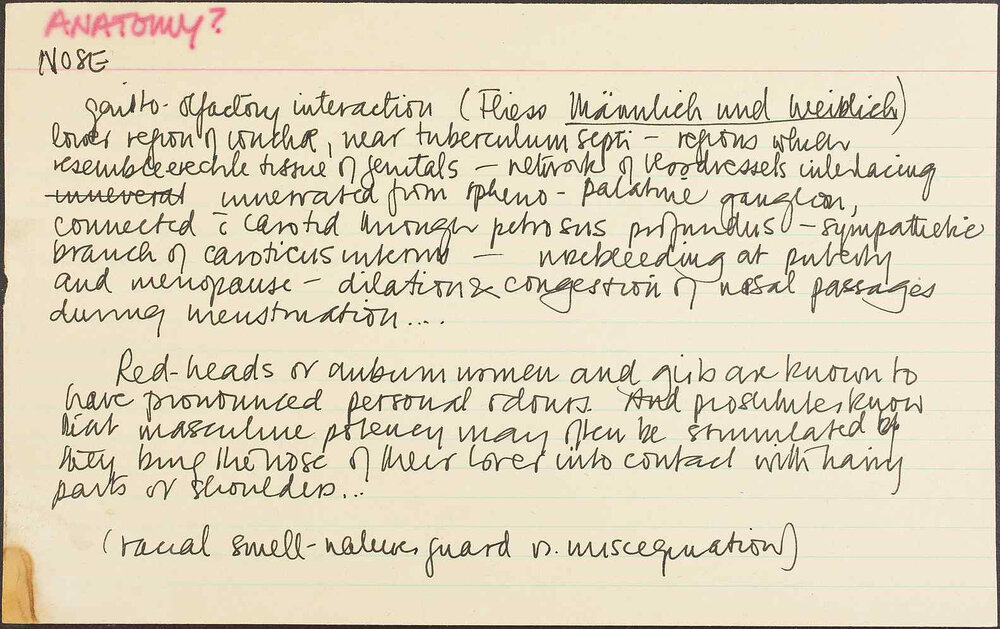 ANATOMY?
NOSE
genito-olfactory interaction (Fliess Männlich und Weiblich)
lower region of concha, near tuberculum septi - regions which
resemble erectile tissue of genitals - network of bloodvessels interlacing
innervated from spheno-palatine ganglion,
connected c̄ carotid through petrosus profundus - sympathetic
branch of caroticus internus - nosebleeding at puberty
and menopause - dilation & congestion of nasal passages
during menstruation....
Red-heads or auburn women and girls are known to
have pronounced personal odours. And prostitutes know
that masculine potency may often be stimulated if
they bring the nose of their lover into contact with hairy
parts or shoulders...
(racial smell-natures guard vs. miscegenation)